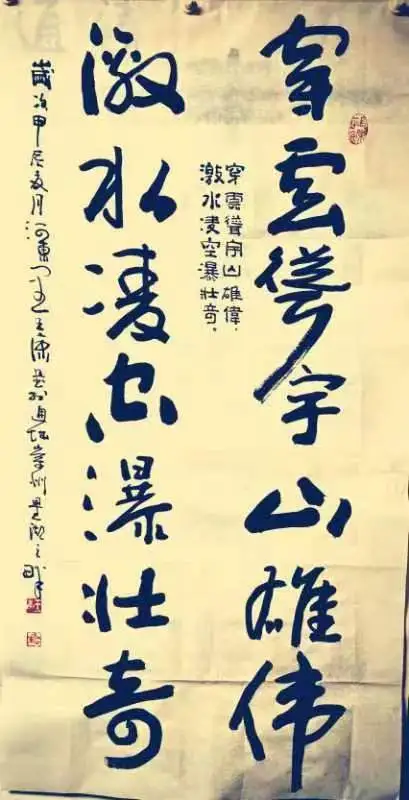 穿雲聳宇山雄伟
激水凌空瀑壮奇
穿雲聳宇山雄偉，
激水凌空瀑壮奇。
歲次甲辰夏月